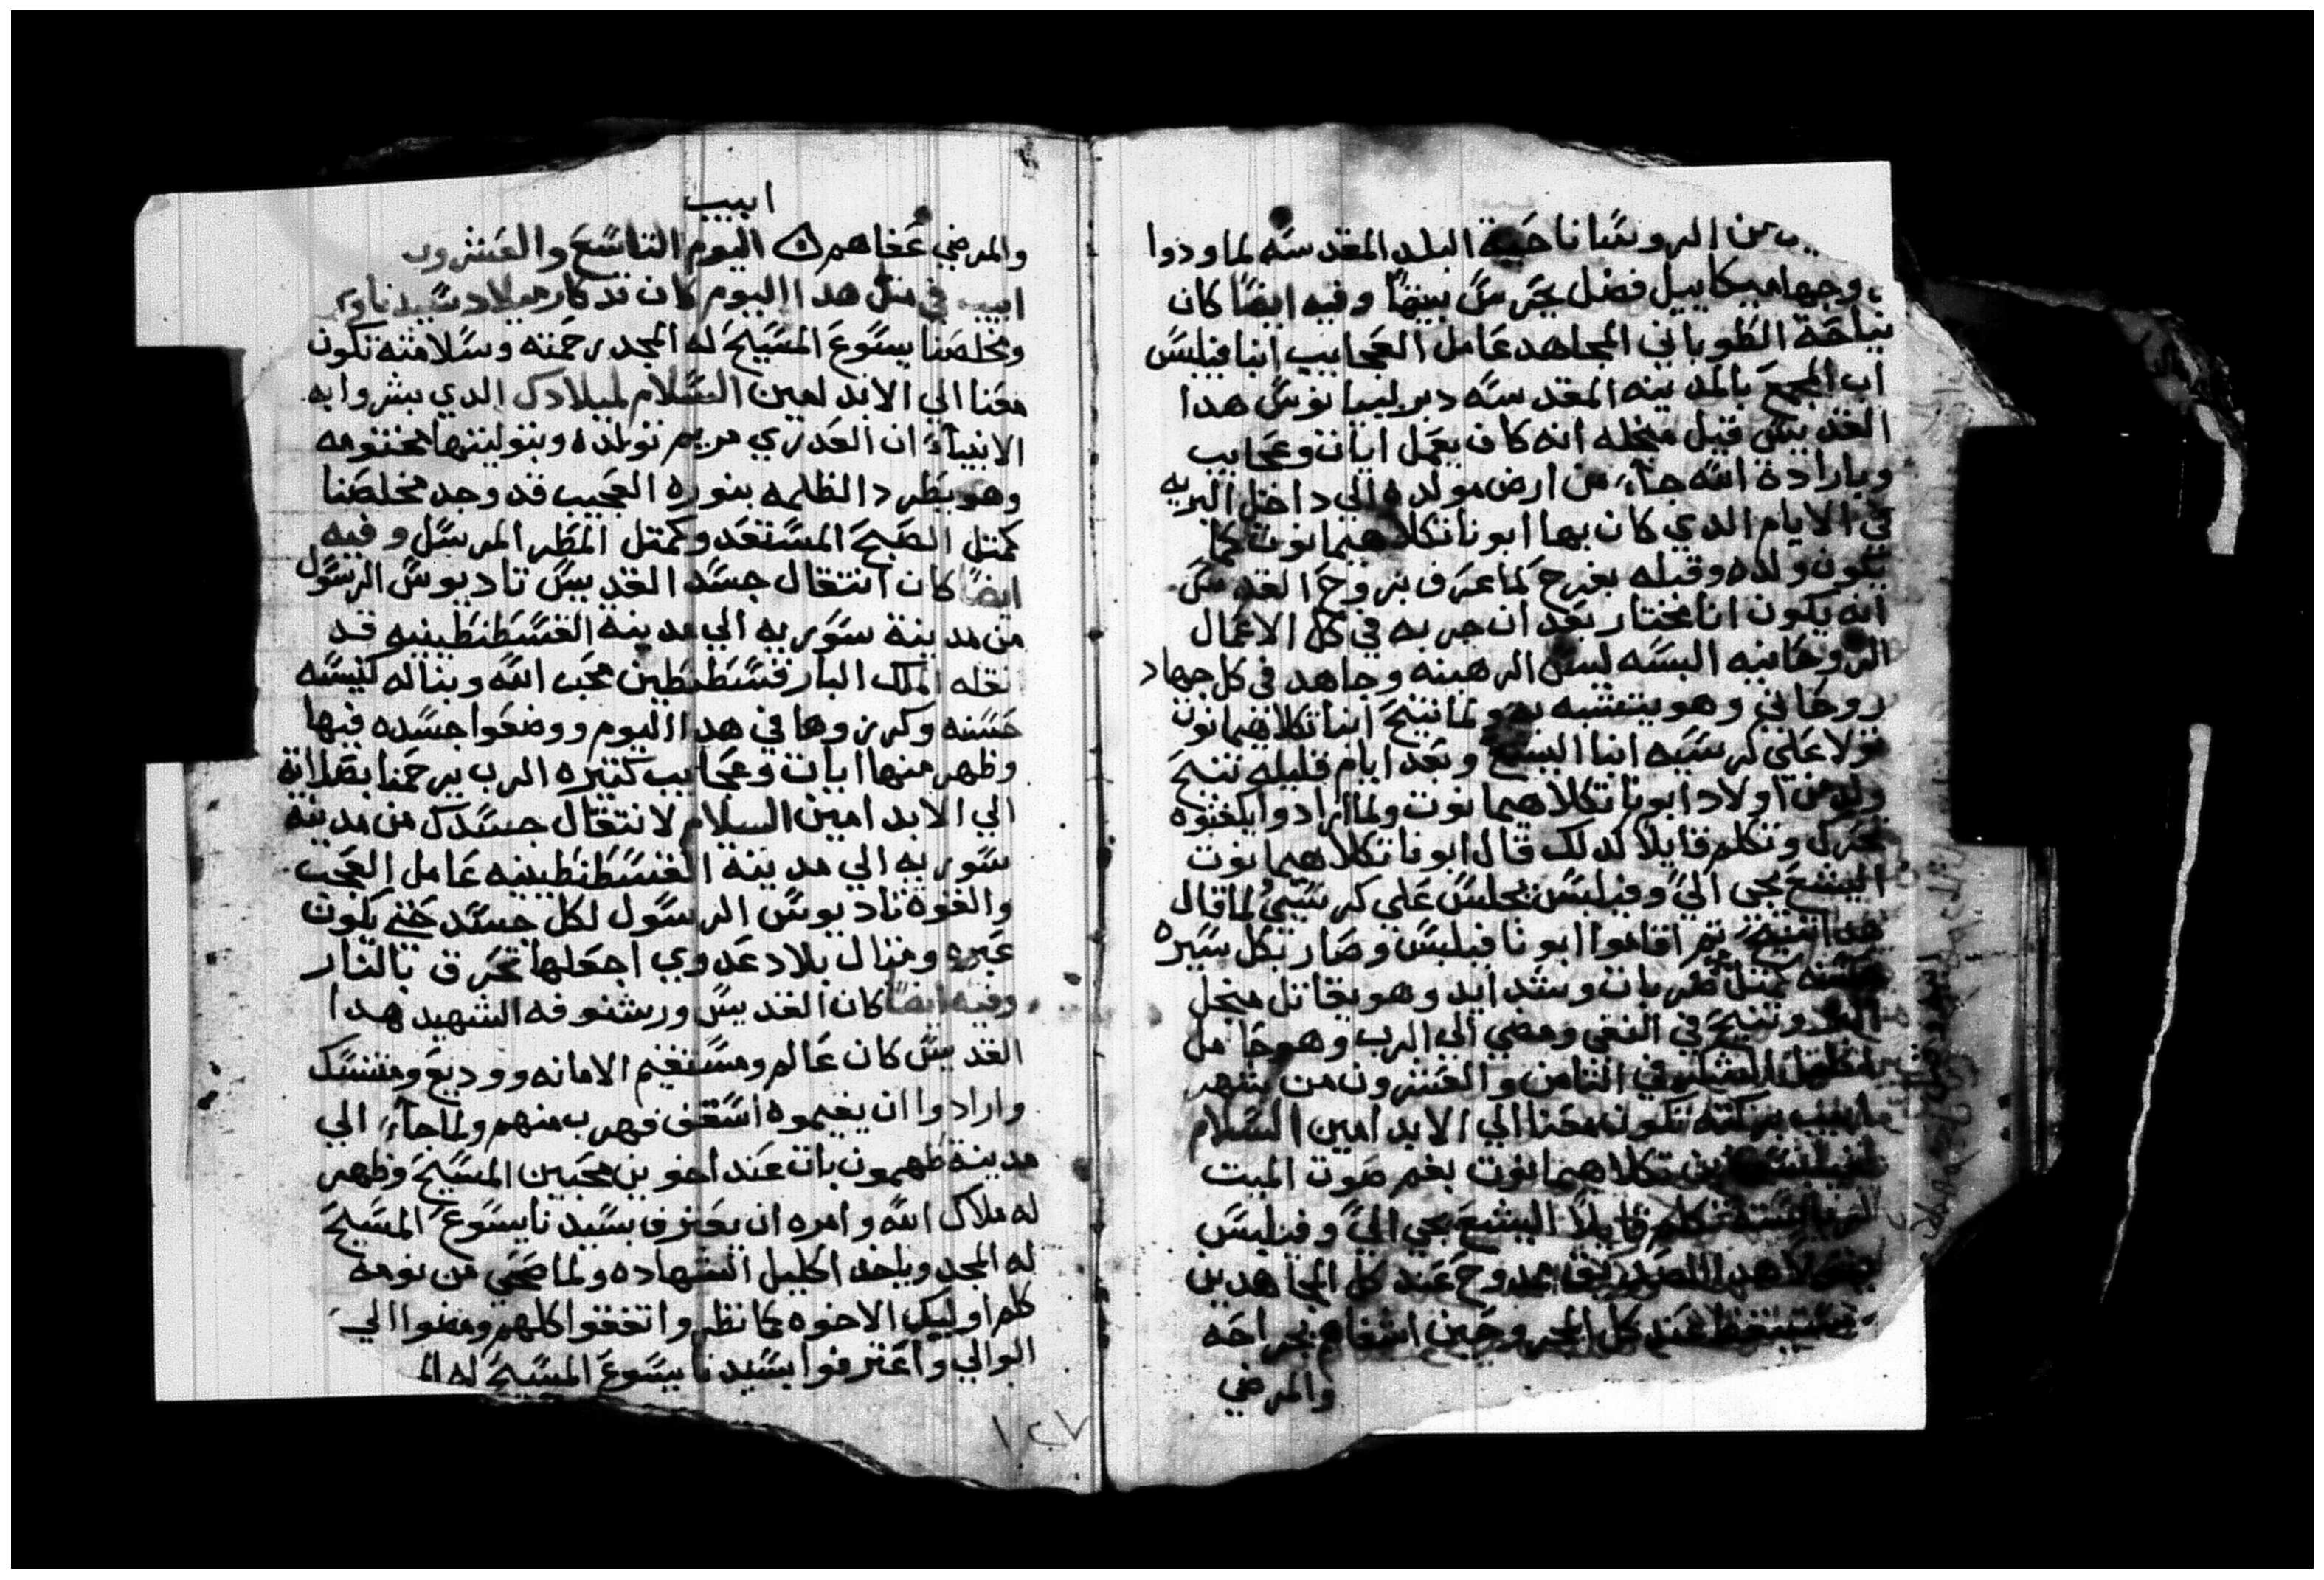 من الروسا ناحية البلد المقدسه لما ودوا
وجها ميكاييل فضل بحرس بيضا وفيه ايضًا كان
نياحة الطوباني المجاهد عامل العجايب انبا فيلبس
اب المجمع بالمدينه المقدسه دير ليبانوس هدا
القديس قبل منجله انه كان يعمل ايات وعجايب
وبارادة الله جآء من ارض مولده الي داخل البريه
في الايام الدي كان بها ابونا تكلا هيمانوت كما
يكون ولده وقبله بفرح لما عرف بروح القدس
انه يكون انا مختار بعد ان جربه في كل الاعمال
الروحانيه البسه لبس الرهبنه وجاهد في كل جهاد
روحاني وهو يتشبه به ولما تنيح ابنا تكلاهيمانوت
تولا علي كرسيه انبا اليشع وبعد ايام قليله تنيح
ولد من اولاد ابونا تكلاهيمانوت ولما ارادوا يكفنوه
تحرك وتكلم قايلا كدلك قال ابونا تكلاهيمانوت
اليشع يجي اليَّ وفيلبس يجلس علي كرسيي لما قال
هدا تنيح ثم اقاموا ابونا فيلبس وصار بكل سيره
حسنه كمتل ضربات وشدايد وهو يقاتل منجل
وتنيح في النفي ومضي الي الرب وهو حامل
في الثامن والعشرون من شهر
ابيب بركته تكون معنا الي الابد امين السلام
لفيلبس ابن تكلاهيمانوت بفم صوت الميت
تكلم قايلاً اليشع يجي اليَّ وفيلبس
هدا الصديق ممدوح عند كل المجاهدين
عند كل المجروحين اشفاهم بجراحه
والمرضي
ابيب
والمرضي عفاهم ۞ اليوم التاسع والعشرون
ابيب في متل هدا اليوم كان تدكار ميلاد سيدنا
ومخلصنا يسوع المسيح له المجد رحمته وسلامته تكون
معنا الي الابد امين السلام لميلادك الدي بشروا به
الانبيآء ان العدري مريم تولده وبتوليتها مختومه
وهو يطرد الظلمه بنوره العجيب قد وجد مخلصنا
كمتل الصبح المستعد وكمتل المطر المرسل وفيه
ايضًا كان انتقال جسد القديس تاديوس الرسول
من مدينة سوريه الي مدينة القسطنطينيه قد
نقله الملك البار قسطنطين محب الله وبنا له كنيسه
حسنه وكرزوها في هدا اليوم ووضعوا جسده فيها
وظهر منها ايات وعجايب كتيره الرب يرحمنا بصلاته
الي الابد امين السلام لانتقال جسدك من مدينة
سوريه الي مدينة القسطنطينيه عامل العجب
والقوه تاديوس الرسول لكل جسد حتي يكون
عبره ومتال بلاد عدوي اجعلها تحرق بالنار
وفيه ايضًا كان القديس ورشنوفه الشهيد هدا
القديس كان عالم ومستقيم الامانه ووديع ومتنسك
وارادوا ان يقيموه اسقف فهرب منهم ولما جآء الي
مدينة طحمون بات عند اخوين محبين المسيح وظهر
له ملاك الله وامره ان يعترف بسيدنا يسوع المسيح
له المجد وياخد اكليل الشهاده ولما صحي من نومه
كلم اوليك الاخوه بما نظر واتفقوا كلهم ومضوا الي
الوالي واعترفوا بسيدنا يسوع المسيح له الم
١٢٧